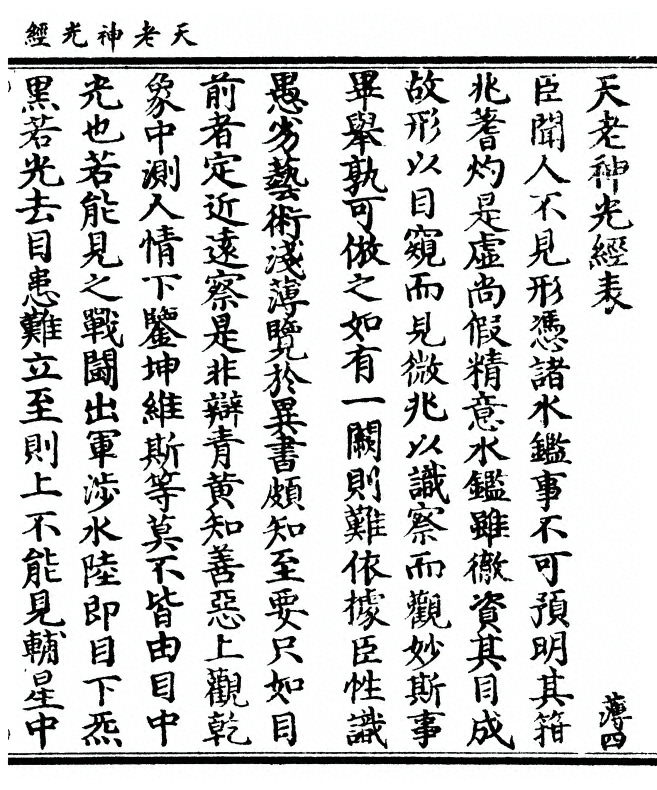 天老神光經
天老神光經表
薄四
臣聞人不見形憑諸水鑑事不可預明其筮
兆蓍灼是虛尚假精意水鑑雖徹資其目成
故形以目窺而見微兆以識察而觀妙斯事
畢舉孰可倣之如有一闕則難依據臣性識
愚劣藝術淺薄覽於異書頗知至要只如目
前者定近遠察是非辯青黄知善惡上觀乾
象中測人情下鑒坤維斯等莫不皆由目中
光也若能見之戰鬪出軍涉水陸即目下炁
黑若光去目患難立至則上不能見輔星中